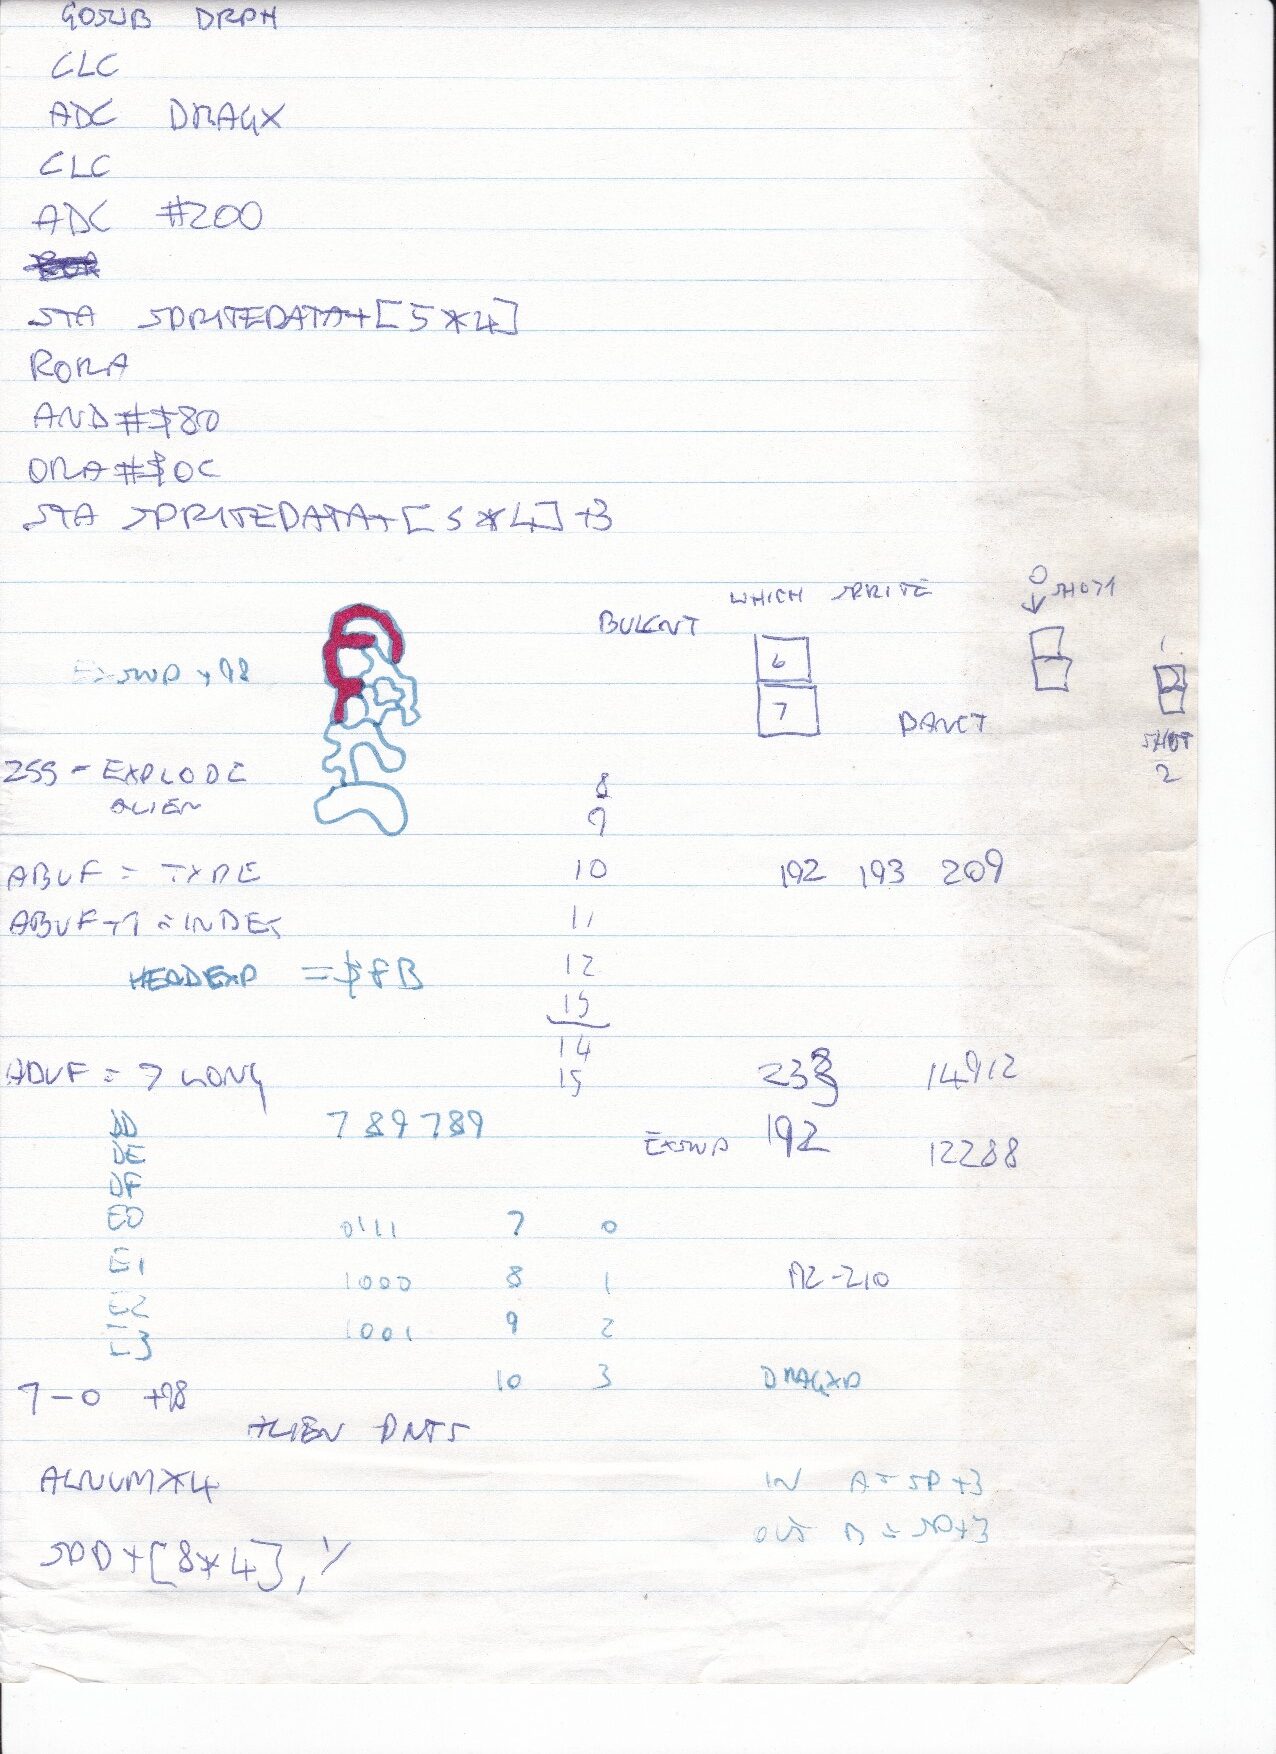 GOSUB DRPH
CLC
ADC DRAGX
CLC
ADC #200
STA SPRITEDATA+[5*4]
RORA
AND#$80
ORA#$0C
STA SPRITEDATA+[5*4]+3
WHICH SPRITE
0
SHOT1
BULCNT
6
7
DANCT
1
2
SHOT
2
+98
255 - EXPLODE
ALIEN
8
9
ABUF = TYPE
10
192 193 209
ABUF+1 = INDEX
11
HEADEXP = $FB
12
13
14
ABUF = 7 LONG
15
233
14912
DD
789789
EXSWP 192
12288
DE
DF
E0
0111 7 0
E1
1000 8 1
-210
E2
1001 9 2
E3
10 3
DRAGXD
7-0 +98
ALIEN PNTS
ALNUM*4
IN A = SP+3
OUT = SP+3
SPD+[8*4],Y